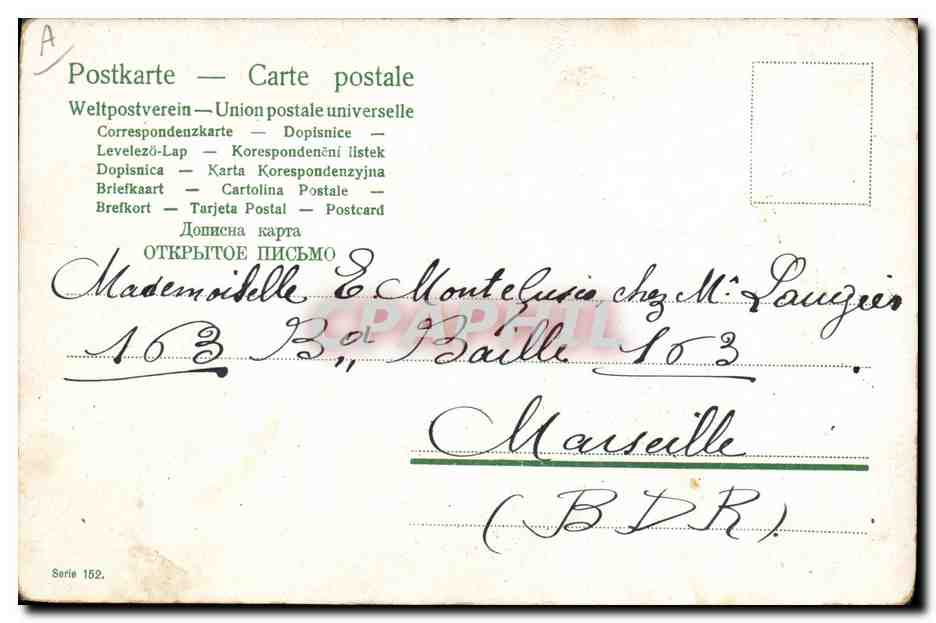 A
Postkarte — Carte postale
Weltpostverein — Union postale universelle
Correspondenzkarte — Dopisnice —
Levelező-Lap — Korespondenční listek
Dopisnica — Karta Korespondenzyjna
Briefkaart — Cartolina Postale —
Brefkort — Tarjeta Postal — Postcard
Дописна карта
ОТКРЫТОЕ ПИСЬМО
Mademoiselle E. chez Mr Laugier
CPAPHIL
163 Bd Baille 163.
Marseille
(BDR)
Serie 152.